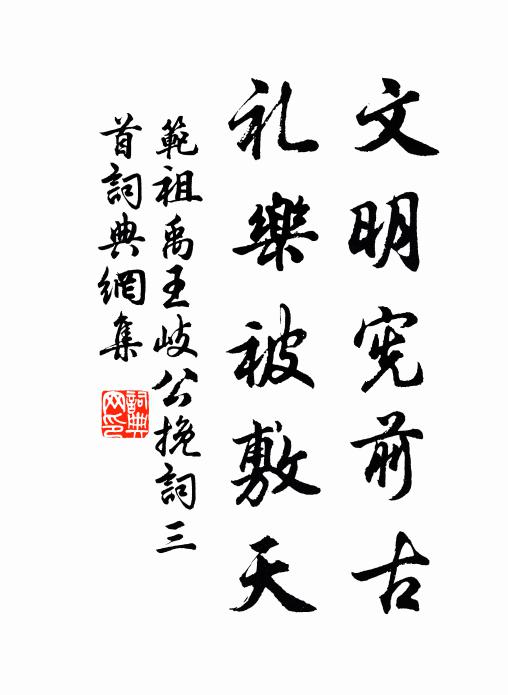 文明宪前古
礼樂被敷天
範祖禹王岐公挽詞三
首詞典網集
詞典
网印